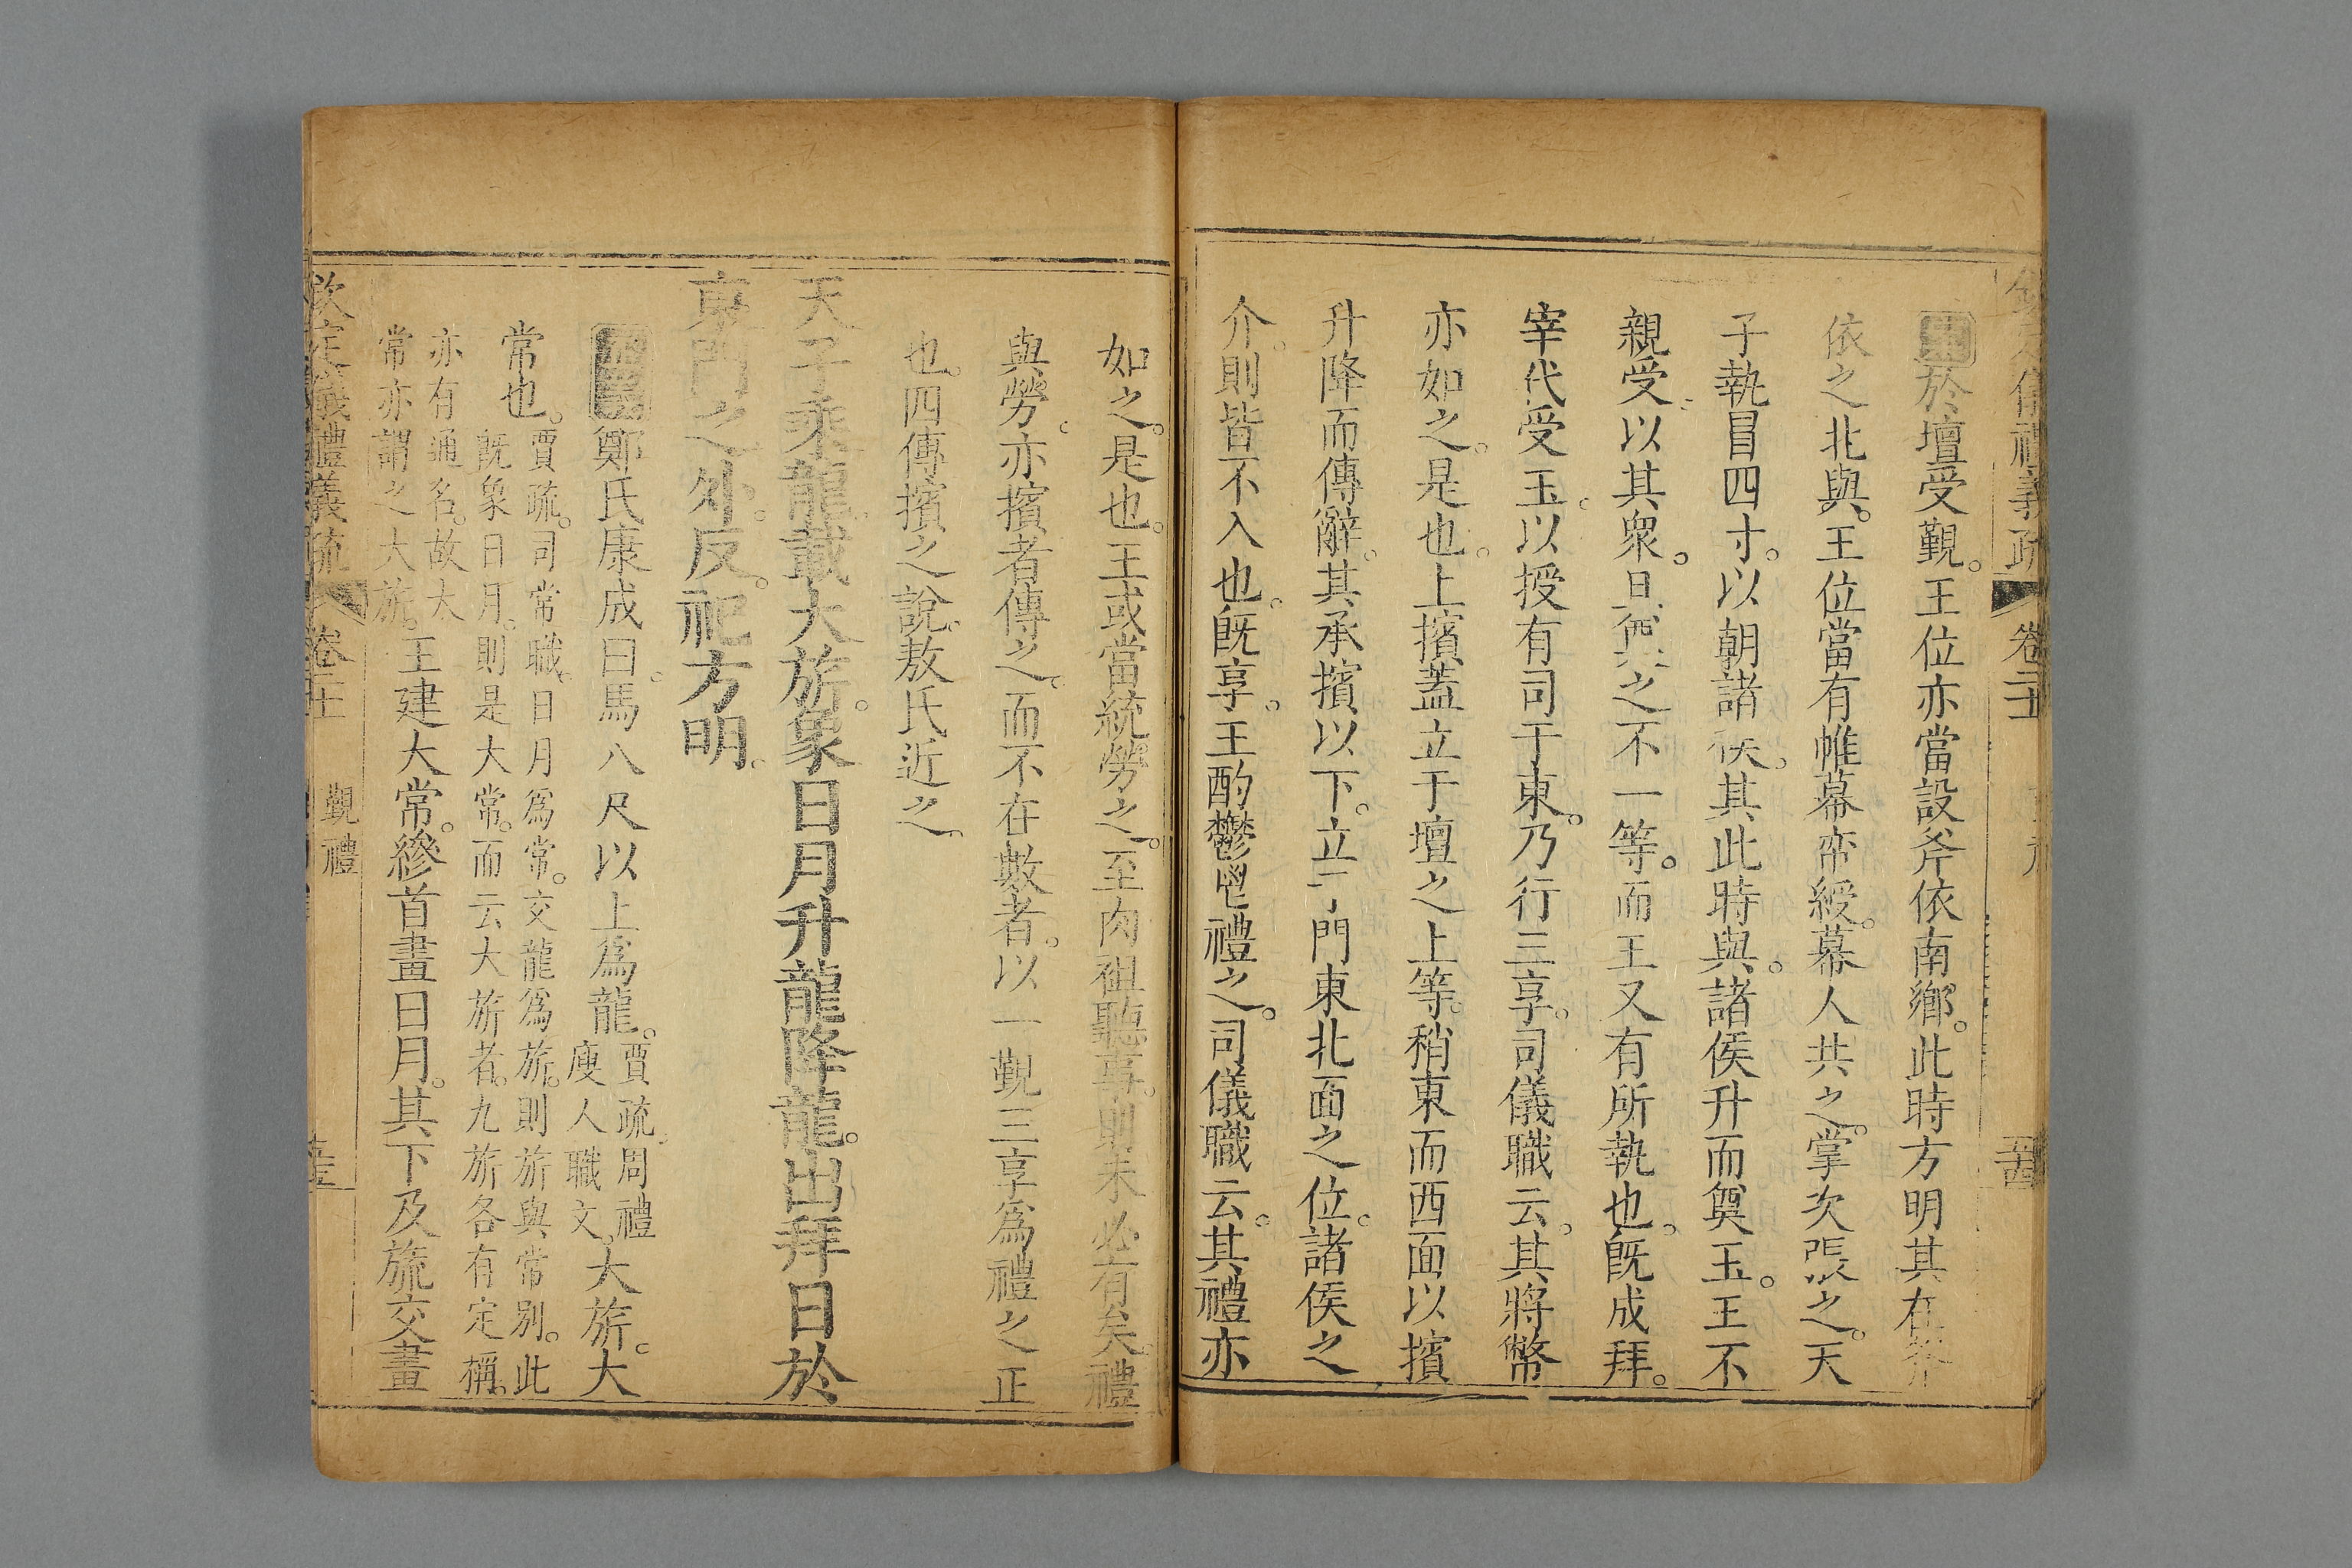 欽定儀禮義疏 卷二十 五十四
於壇受覲。王位亦當設斧依南鄉。此時方明其在斧
依之北與。王位當有帷幕帟綬。幕人共之。掌次張之。天
子執冒四寸。以朝諸侯。其此時與。諸侯升而奠玉。王不
親受。以其衆。且之不一等。而王又有所執也。既成拜。
宰代受玉。以授有司于東。乃行三享。司儀職云。其將幣
亦如之。是也。上擯蓋立于壇之上等。稍東而西面以擯
升降而傳辭。其承擯以下。立于門東北面之位。諸侯之
介。則皆不入也。既享。王酌鬱鬯禮之。司儀職云。其禮亦
如之。是也。王或當統勞之。至肉袒聽事。則未必有矣。禮
與勞。亦擯者傳之。而不在數者。以一觀三享爲禮之正
也。四傳擯之說。敖氏近之。
天子乘龍載大旂。象日月升龍降龍。出拜日於
東門之外。反。祀方明。
鄭氏康成曰。馬八尺以上爲龍。賈疏。周禮
廋人職文。大旂。大
常也。賈疏。司常職。日月爲常。交龍爲旂。則旂與常別。此
既象日月。則是大常。而云大旂者。九旂各有定稱。
亦有通名。故大
常亦謂之大旂。王建大常。縿首畫日月。其下及旒交畫
欽定儀禮義疏 卷二十 覲禮 五十五